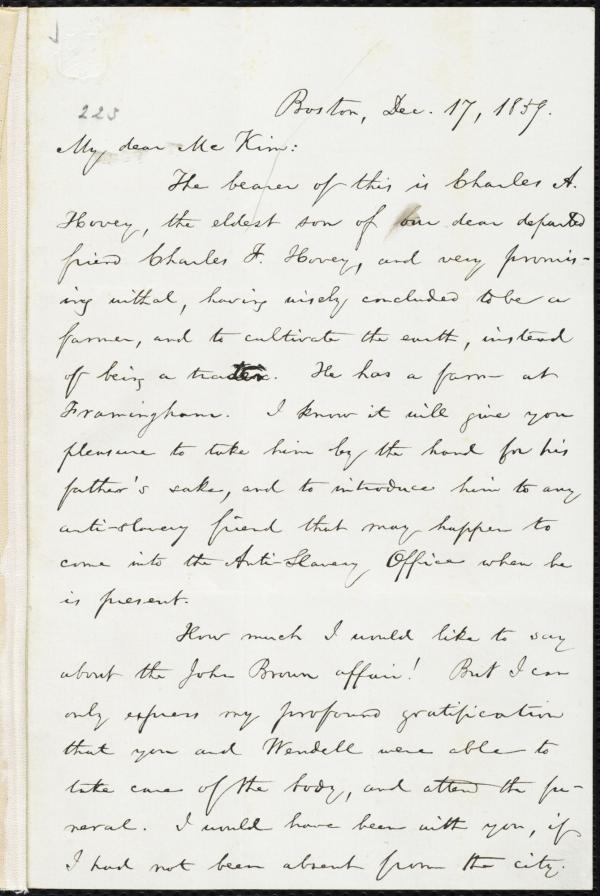 225
Boston, Dec. 17, 1859.
My dear Mc Kim:
The bearer of this is Charles A.
Hovey, the eldest son of our dear departed
friend Charles F. Hovey, and very promis-
ing withal, having wisely concluded to be a
farmer, and to cultivate the earth, instead
of being a trader. He has a farm at
Framingham. I know it will give you
pleasure to take him by the hand for his
father's sake, and to introduce him to any
anti-slavery friend that may happen to
come into the Anti-Slavery Office when he
is present.
How much I would like to say
about the John Brown affair! But I can
only express my profound gratification
that you and Wendell were able to
take care of the body, and attend the fu-
neral. I would have been with you, if
I had not been absent from the city.